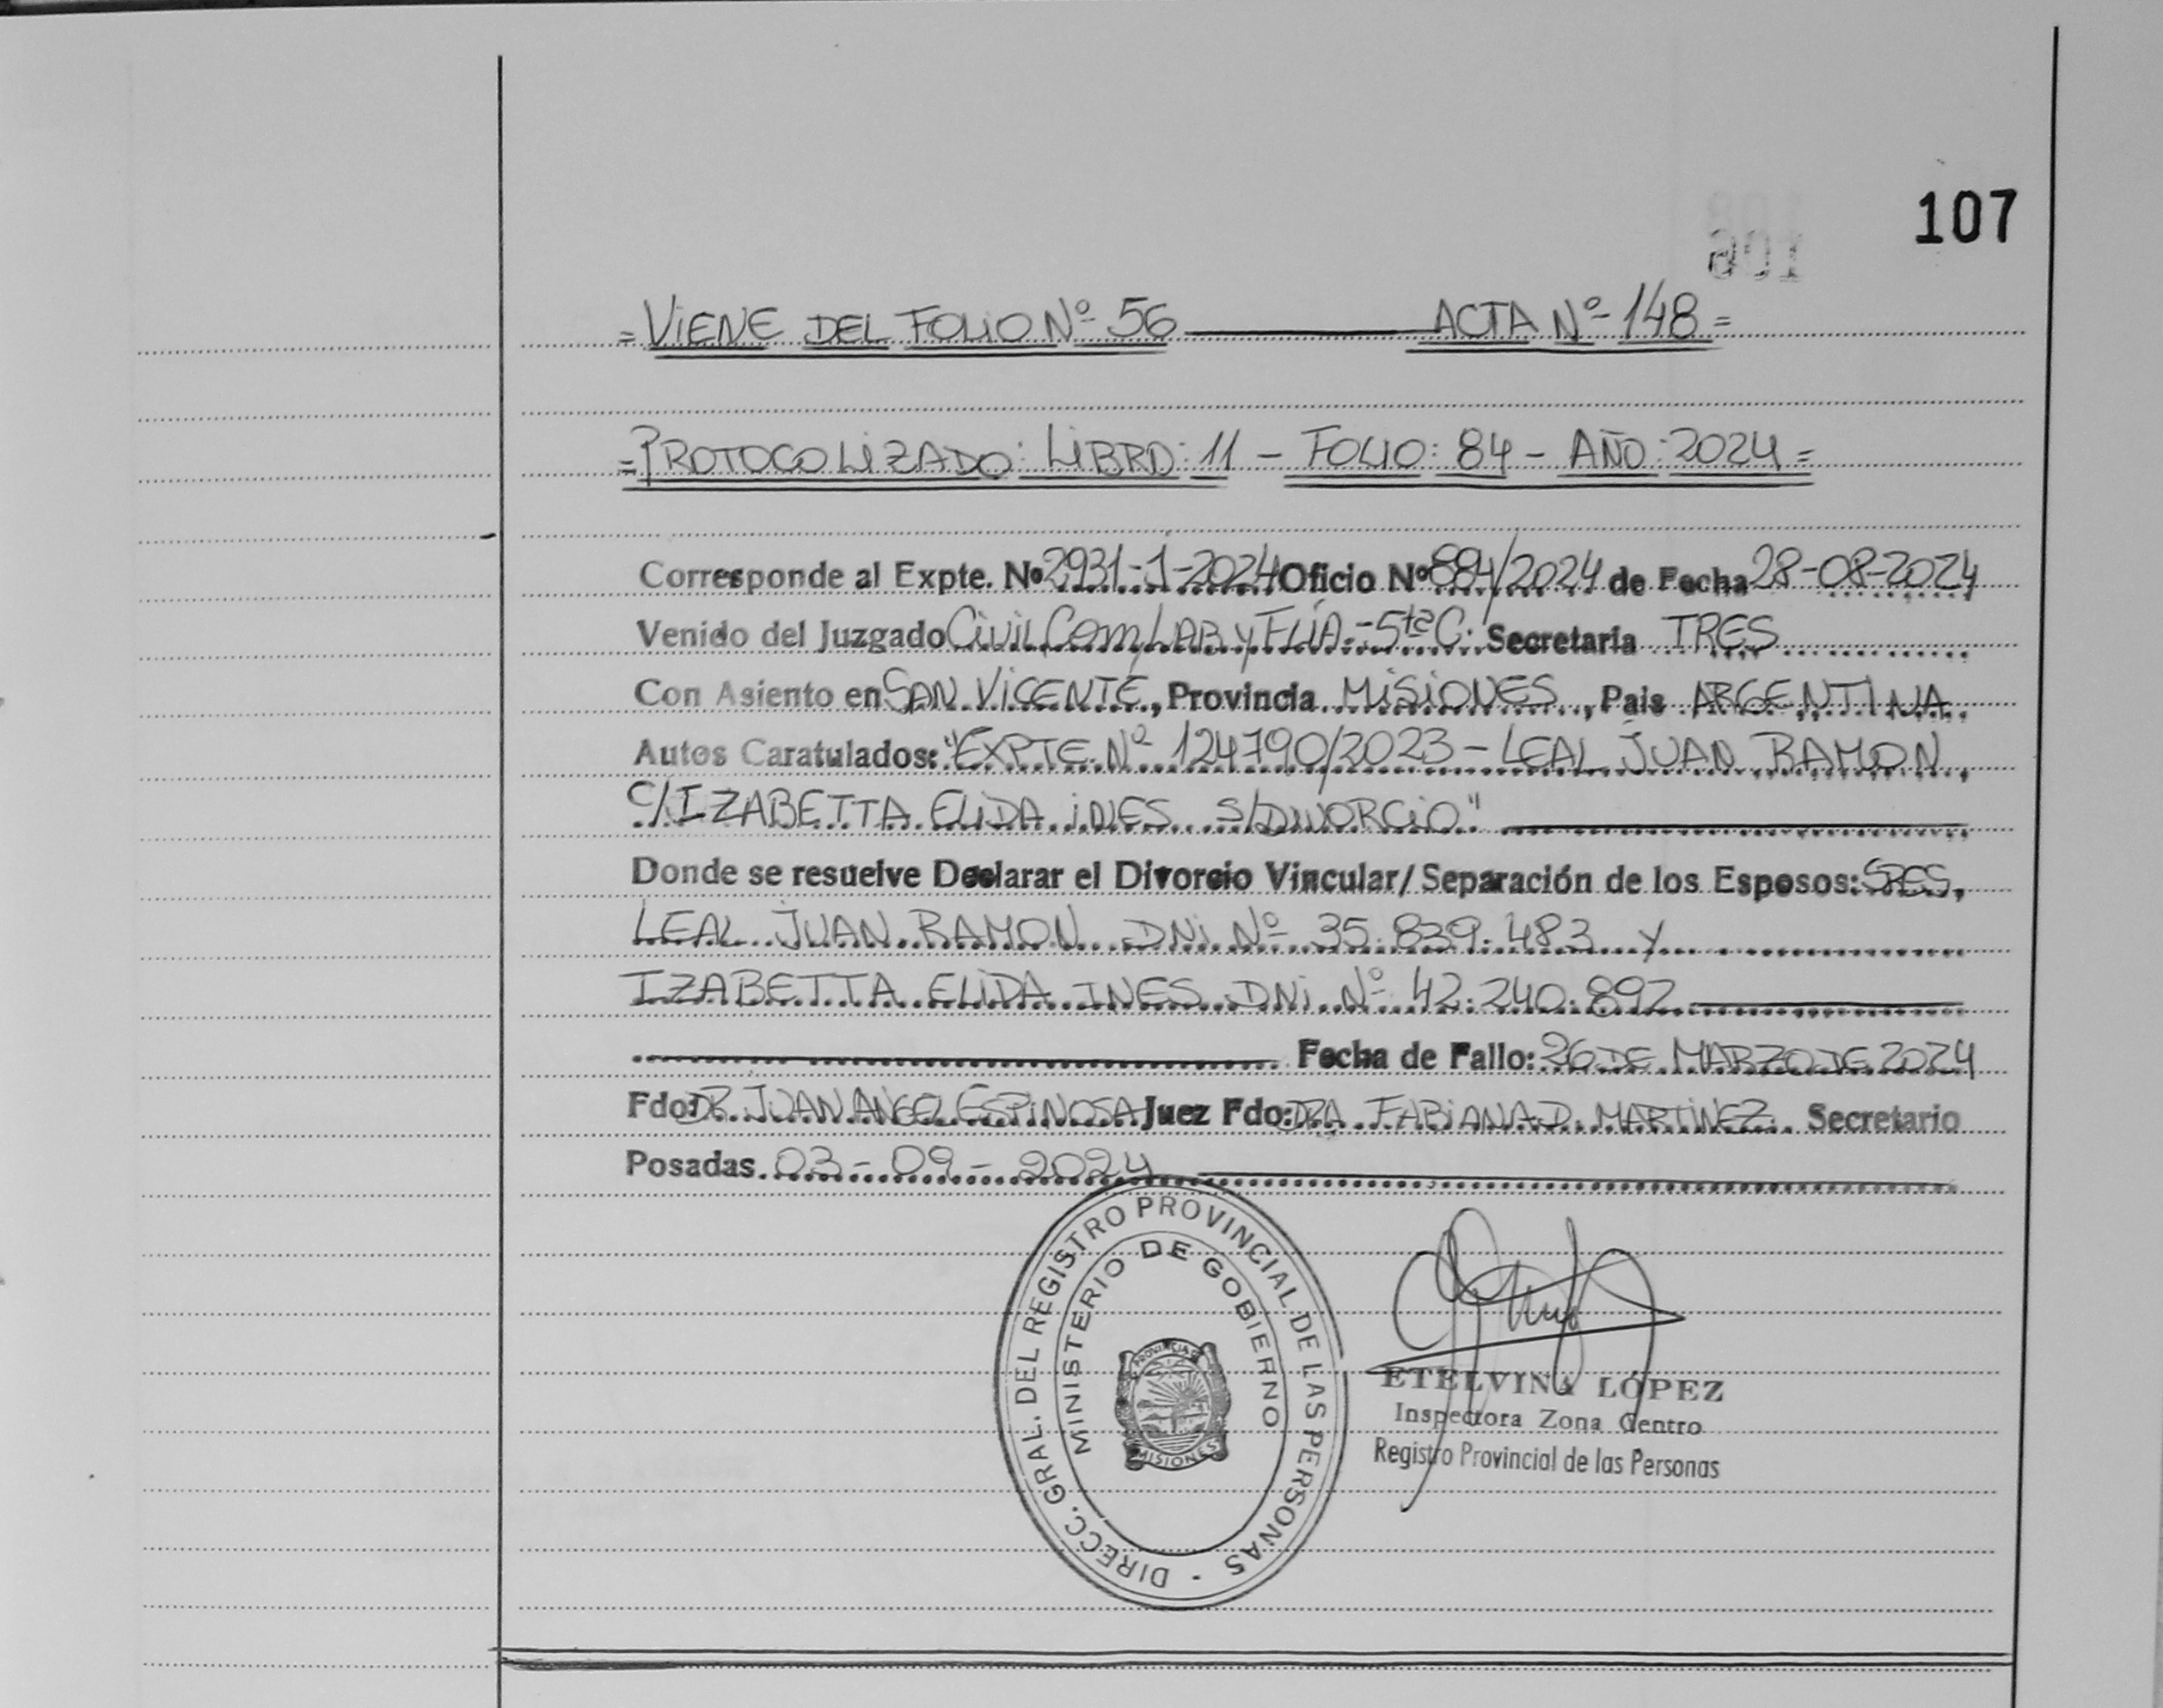 107
= VIENE DEL FOLIO Nº 56 ACTA Nº 148 =
= PROTOCOLIZADO: LIBRO: 11 - FOLIO: 84 - AÑO: 2024 =
Corresponde al Expte. Nº 2931-1-2024 Oficio Nº 884/2024 de Fecha 28-08-2024
Venido del Juzgado Civil, Com, LAB y FLIA.-5ta C. Secretaria TRES
Con Asiento en SAN VICENTE, Provincia MISIONES, Pais ARGENTINA.
Autos Caratulados: "EXPTE Nº 124790/2023 - LEAL JUAN RAMON
C/IZABETTA ELIDA INES S/DIVORCIO"
Donde se resuelve Declarar el Divorcio Vincular/Separación de los Esposos: SRES,
LEAL JUAN RAMON DNI Nº 35.839.483 y
IZABETTA ELIDA INES DNI Nº 42.240.892
Fecha de Fallo: 26 DE MARZO DE 2024
Fdo: DR. JUAN ANGEL ESPINOSA Juez Fdo: DRA FABIANA D. MARTINEZ Secretario
Posadas 03-09-2024
DIRECC. GRAL. DEL REGISTRO PROVINCIAL DE LAS PERSONAS -
MINISTERIO DE GOBIERNO
PROVINCIA DE
MISIONES
ETELVINA LÓPEZ
Inspectora Zona Centro
Registro Provincial de las Personas